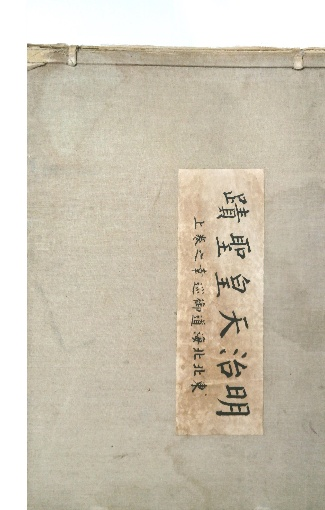 明治天皇聖蹟
東北北海道御巡幸之巻上